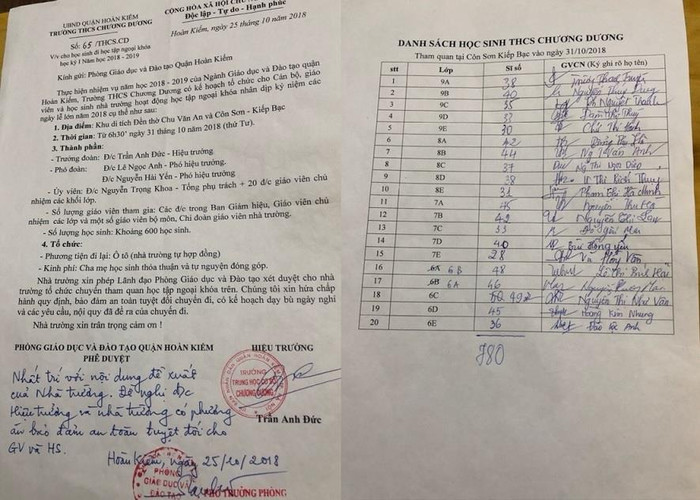 UBND QUẬN HOÀN KIẾM
TRƯỜNG THCS CHƯƠNG DƯƠNG
Số: 65 /THCS.CD
V/v cho học sinh đi học tập ngoại khóa
học kỳ I Năm học 2018 - 2019
CỘNG HÒA XÃ HỘI CHỦ
Độc lập - Tự do - Hạnh phúc
Hoàn Kiếm, ngày 25 tháng 10 năm 2018
Kính gửi: Phòng Giáo dục và Đào tạo Quận Hoàn Kiếm
Thực hiện nhiệm vụ năm học 2018 - 2019 của Ngành Giáo dục và Đào tạo quận
Hoàn Kiếm, Trường THCS Chương Dương có kế hoạch tổ chức cho Cán bộ, giáo
viên và học sinh nhà trường hoạt động học tập ngoại khóa nhân dịp kỷ niệm các
ngày lễ lớn năm 2018 cụ thể như sau:
1. Địa điểm: Khu di tích Đền thờ Chu Văn An và Côn Sơn - Kiếp Bạc
2. Thời gian: Từ 6h30' ngày 31 tháng 10 năm 2018 (thứ Tư).
3. Thành phần:
- Trưởng đoàn: Đ/c Trần Anh Đức - Hiệu trưởng.
- Phó đoàn: Đ/c Lê Ngọc Anh - Phó hiệu trưởng.
Đ/c Nguyễn Hải Yến - Phó hiệu trưởng
- Ủy viên: Đ/c Nguyễn Trọng Khoa - Tổng phụ trách + 20 đ/c giáo viên chủ
nhiệm các khối lớp.
- Số lượng giáo viên tham gia: Các đ/c trong Ban Giám hiệu, Giáo viên chủ
nhiệm các lớp và một số giáo viên bộ môn, Chi đoàn giáo viên nhà trường.
- Số lượng học sinh: Khoảng 600 học sinh.
4. Tổ chức:
- Phương tiện đi lại: Ô tô (nhà trường tự hợp đồng)
- Kinh phí: Cha mẹ học sinh thỏa thuận và tự nguyện đóng góp.
Nhà trường xin phép Lãnh đạo Phòng Giáo dục và Đào tạo xét duyệt cho nhà
trường tổ chức chuyến tham quan học tập ngoại khóa trên. Chúng tôi xin hứa chấp
hành quy định, bảo đảm an toàn tuyệt đối chuyến đi, có kế hoạch dạy bù ngày nghỉ
và các yêu cầu, nội quy đã đề ra của chuyến đi.
Nhà trường xin trân trọng cảm ơn !
PHÒNG GIÁO DỤC VÀ ĐÀO TẠO QUẬN HOÀN KIẾM
PHÊ DUYỆT
Nhất trí với nội dung đề xuất
của Nhà trường. Đề nghị đ/c
Hiệu trưởng và nhà trường có phương
án bảo đảm an toàn tuyệt đối cho
GV và HS.
Hoàn Kiếm, ngày 25/10/2018
PHÒNG
GIÁO DỤC VÀ
ĐÀO TẠO
PHÓ TRƯỞNG PHÒNG
HIỆU TRƯỞNG
TRƯỜNG
TRUNG HỌC CƠ SỞ
CHƯƠNG DƯƠNG
Trần Anh Đức
DANH SÁCH HỌC SINH THCS CHƯƠNG DƯƠNG
Tham quan tại Côn Sơn Kiếp Bạc vào ngày 31/10/2018
stt Lớp Sĩ số GVCN (Ký ghi rõ họ tên)
1 9A 38
2 9B 40 Nguyễn Thùy Dung
3 9C 35
4 9D 37
5 9E 30
6 8A 42
7 8B 44 Vân Anh
8 8C 37
9 8D 38
10 8E 33
11 7A 45 Nguyễn Thu Hà
12 7B 42
13 7C 33
14 7D 40
15 7E 28
16 6A 6B 48
17 6B 6A 46
18 6C 49 Nguyễn Thị Như Vân
19 6D 45 Hoàng Kim Nhung
20 6E 36
780